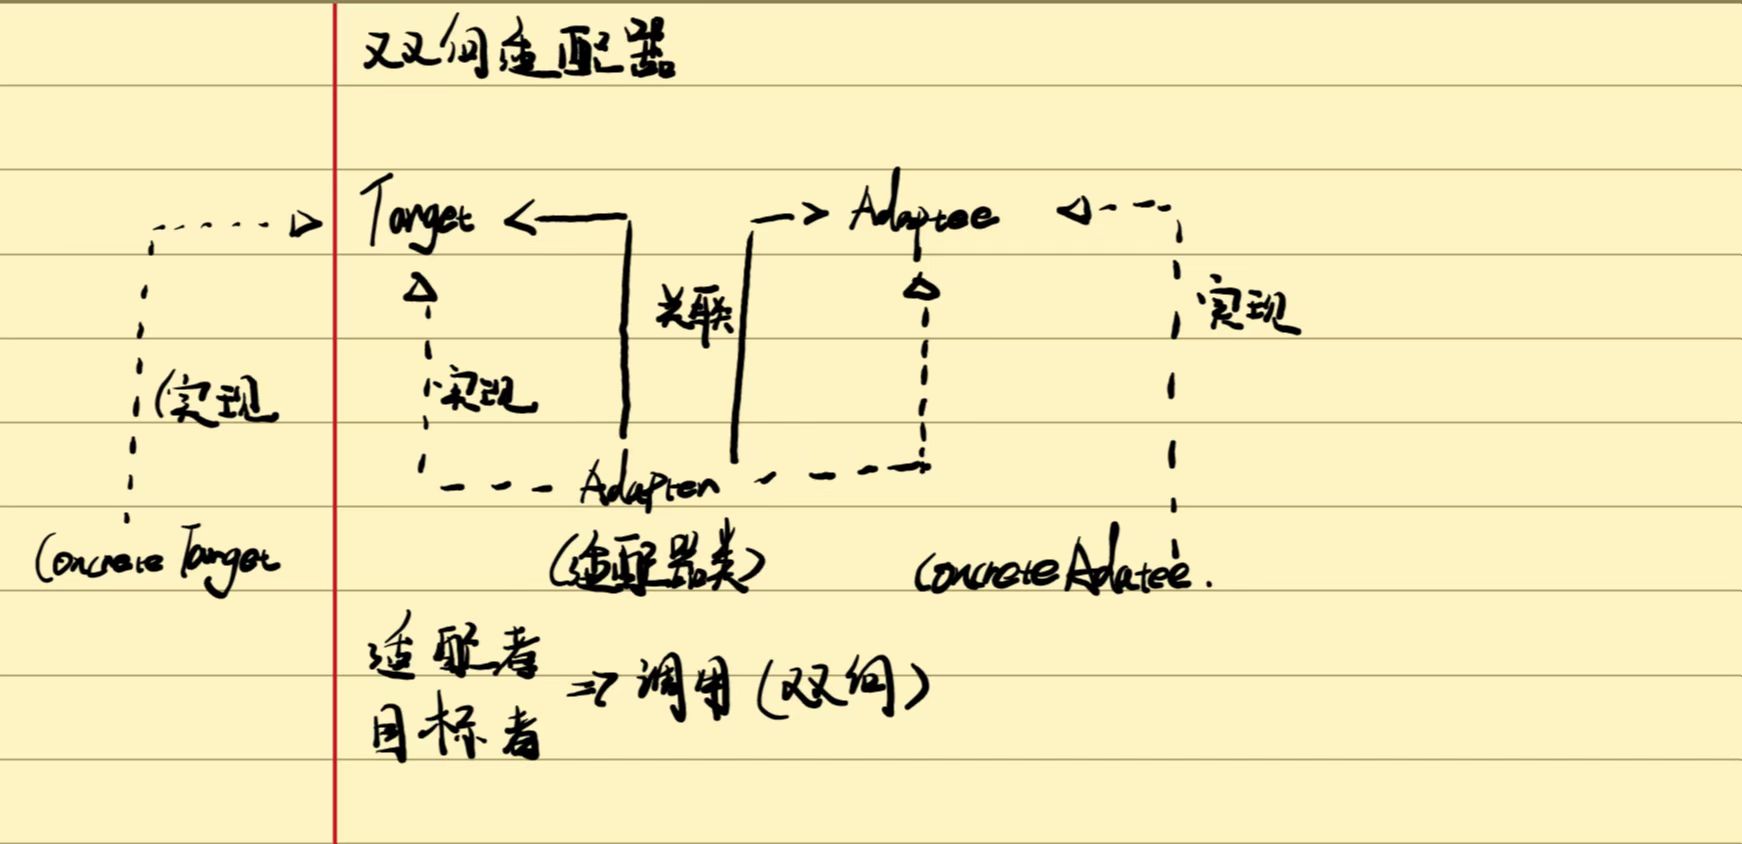 双向适配器
Target
Adaptee
关联
实现
实现
实现
Adapter
Concrete Target
(适配器类)
concrete Adatee.
适配者
目标者
=> 调用 (双向)